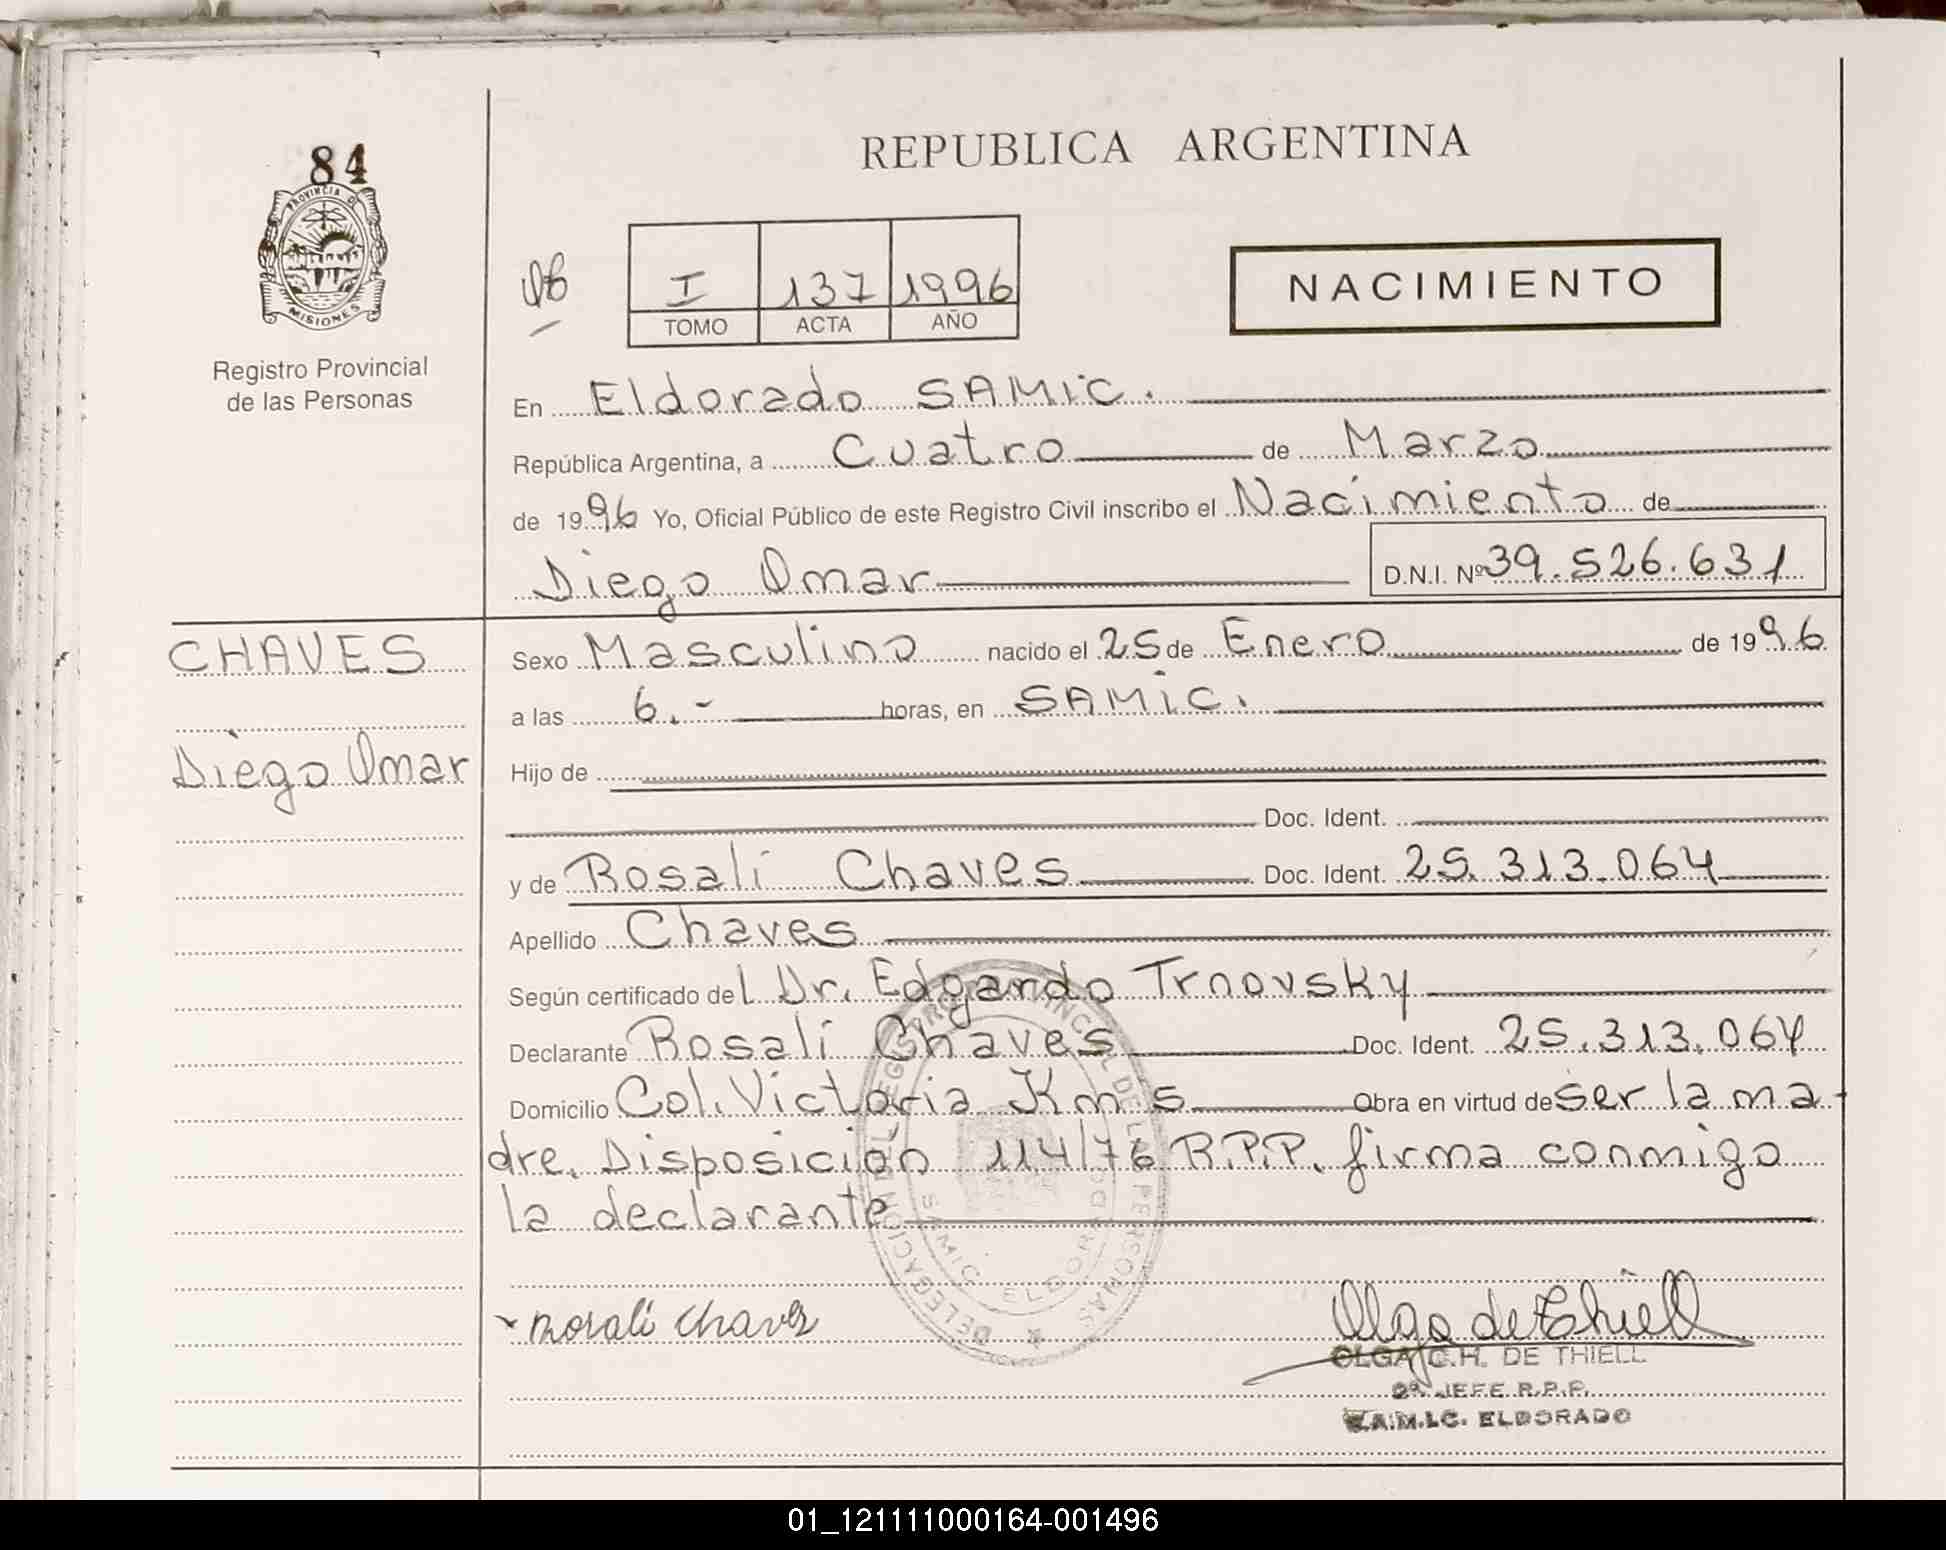 84
PROVINCIA DE
MISIONES
Registro Provincial
de las Personas
REPUBLICA ARGENTINA
I 137 1996
TOMO ACTA AÑO
NACIMIENTO
En Eldorado SAMIC.
República Argentina, a Cuatro de Marzo
de 1996 Yo, Oficial Público de este Registro Civil inscribo el Nacimiento de
Diego Omar D.N.I. Nº 39.526.631
CHAVES
Diego Omar
Sexo Masculino nacido el 25 de Enero de 1996
a las 6.- horas, en SAMIC.
Hijo de
Doc. Ident.
y de Rosali Chaves Doc. Ident. 25.313.064
Apellido Chaves
Según certificado del Dr. Edgardo Trnovsky
Declarante Rosali Chaves Doc. Ident. 25.313.064
Domicilio Col. Victoria Km 5 Obra en virtud de ser la ma-
dre. Disposición 114/76 R.P.P. firma conmigo
la declarante
DELEGACION DEL REGISTRO PROVINCIAL DE LAS PERSONAS
SAMIC ELDORADO
Rosali Chavez
Olga de Thiell
OLGA C.H. DE THIELL
2º JEFE R.P.P.
S.A.M.I.C. ELDORADO
01_121111000164-001496